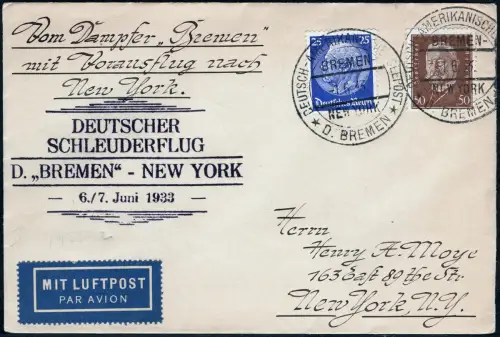 Vom Dampfer „Bremen"
mit Vorausflug nach
New York.
DEUTSCHER
SCHLEUDERFLUG
D. „BREMEN" - NEW YORK
— 6./7. Juni 1933 —
25 25
Deutsches Reich
BREMEN -
NEW YORK
* D. BREMEN *
AMERIKANISCHE
BREMEN -
NEW YORK
BREMEN
50 50
Herrn
Henry A. Moye
163 East 89the Str.
New York, N.Y.
MIT LUFTPOST
PAR AVION